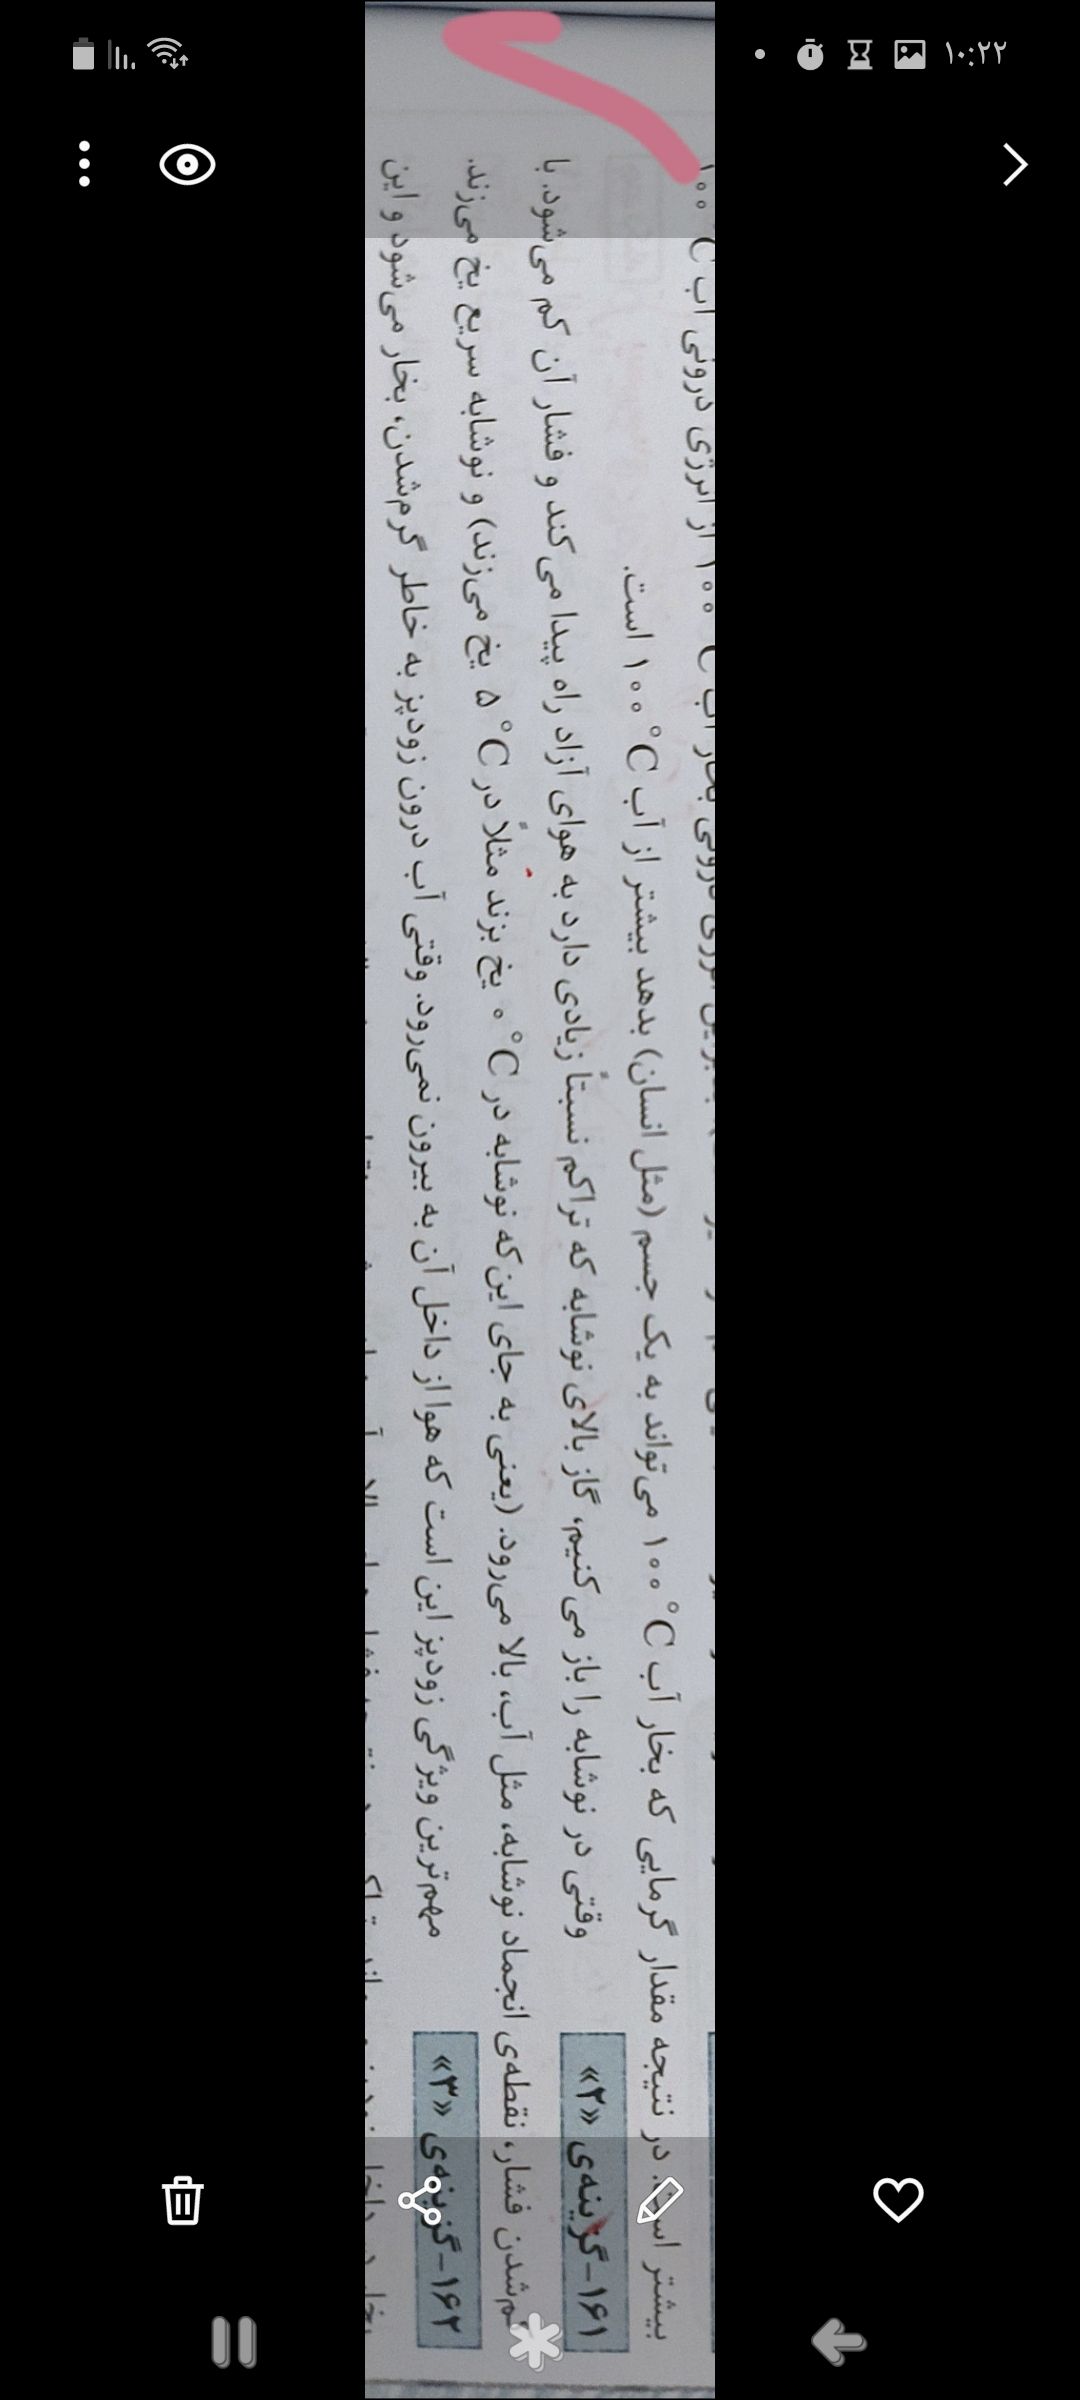 ۱۰:۲۲
بیشتر است. در نتیجه مقدار گرمایی که بخار آب ۱۰۰°C می‌تواند به یک جسم (مثل انسان) بدهد بیشتر از آب ۱۰۰°C است.
۱۶۱-گزینه‌ی «۲» وقتی در نوشابه را باز می‌کنیم، گاز بالای نوشابه که تراکم نسبتاً زیادی دارد به هوای آزاد راه پیدا می‌کند و فشار آن کم می‌شود. با
کم‌شدن فشار، نقطه‌ی انجماد نوشابه، مثل آب، بالا می‌رود. (یعنی به جای این‌که نوشابه در ۰°C یخ بزند مثلاً در ۵°C یخ می‌زند) و نوشابه سریع یخ می‌زند.
۱۶۲-گزینه‌ی «۳» مهم‌ترین ویژگی زودپز این است که هوا از داخل آن به بیرون نمی‌رود. وقتی آب درون زودپز به خاطر گرم‌شدن، بخار می‌شود و این